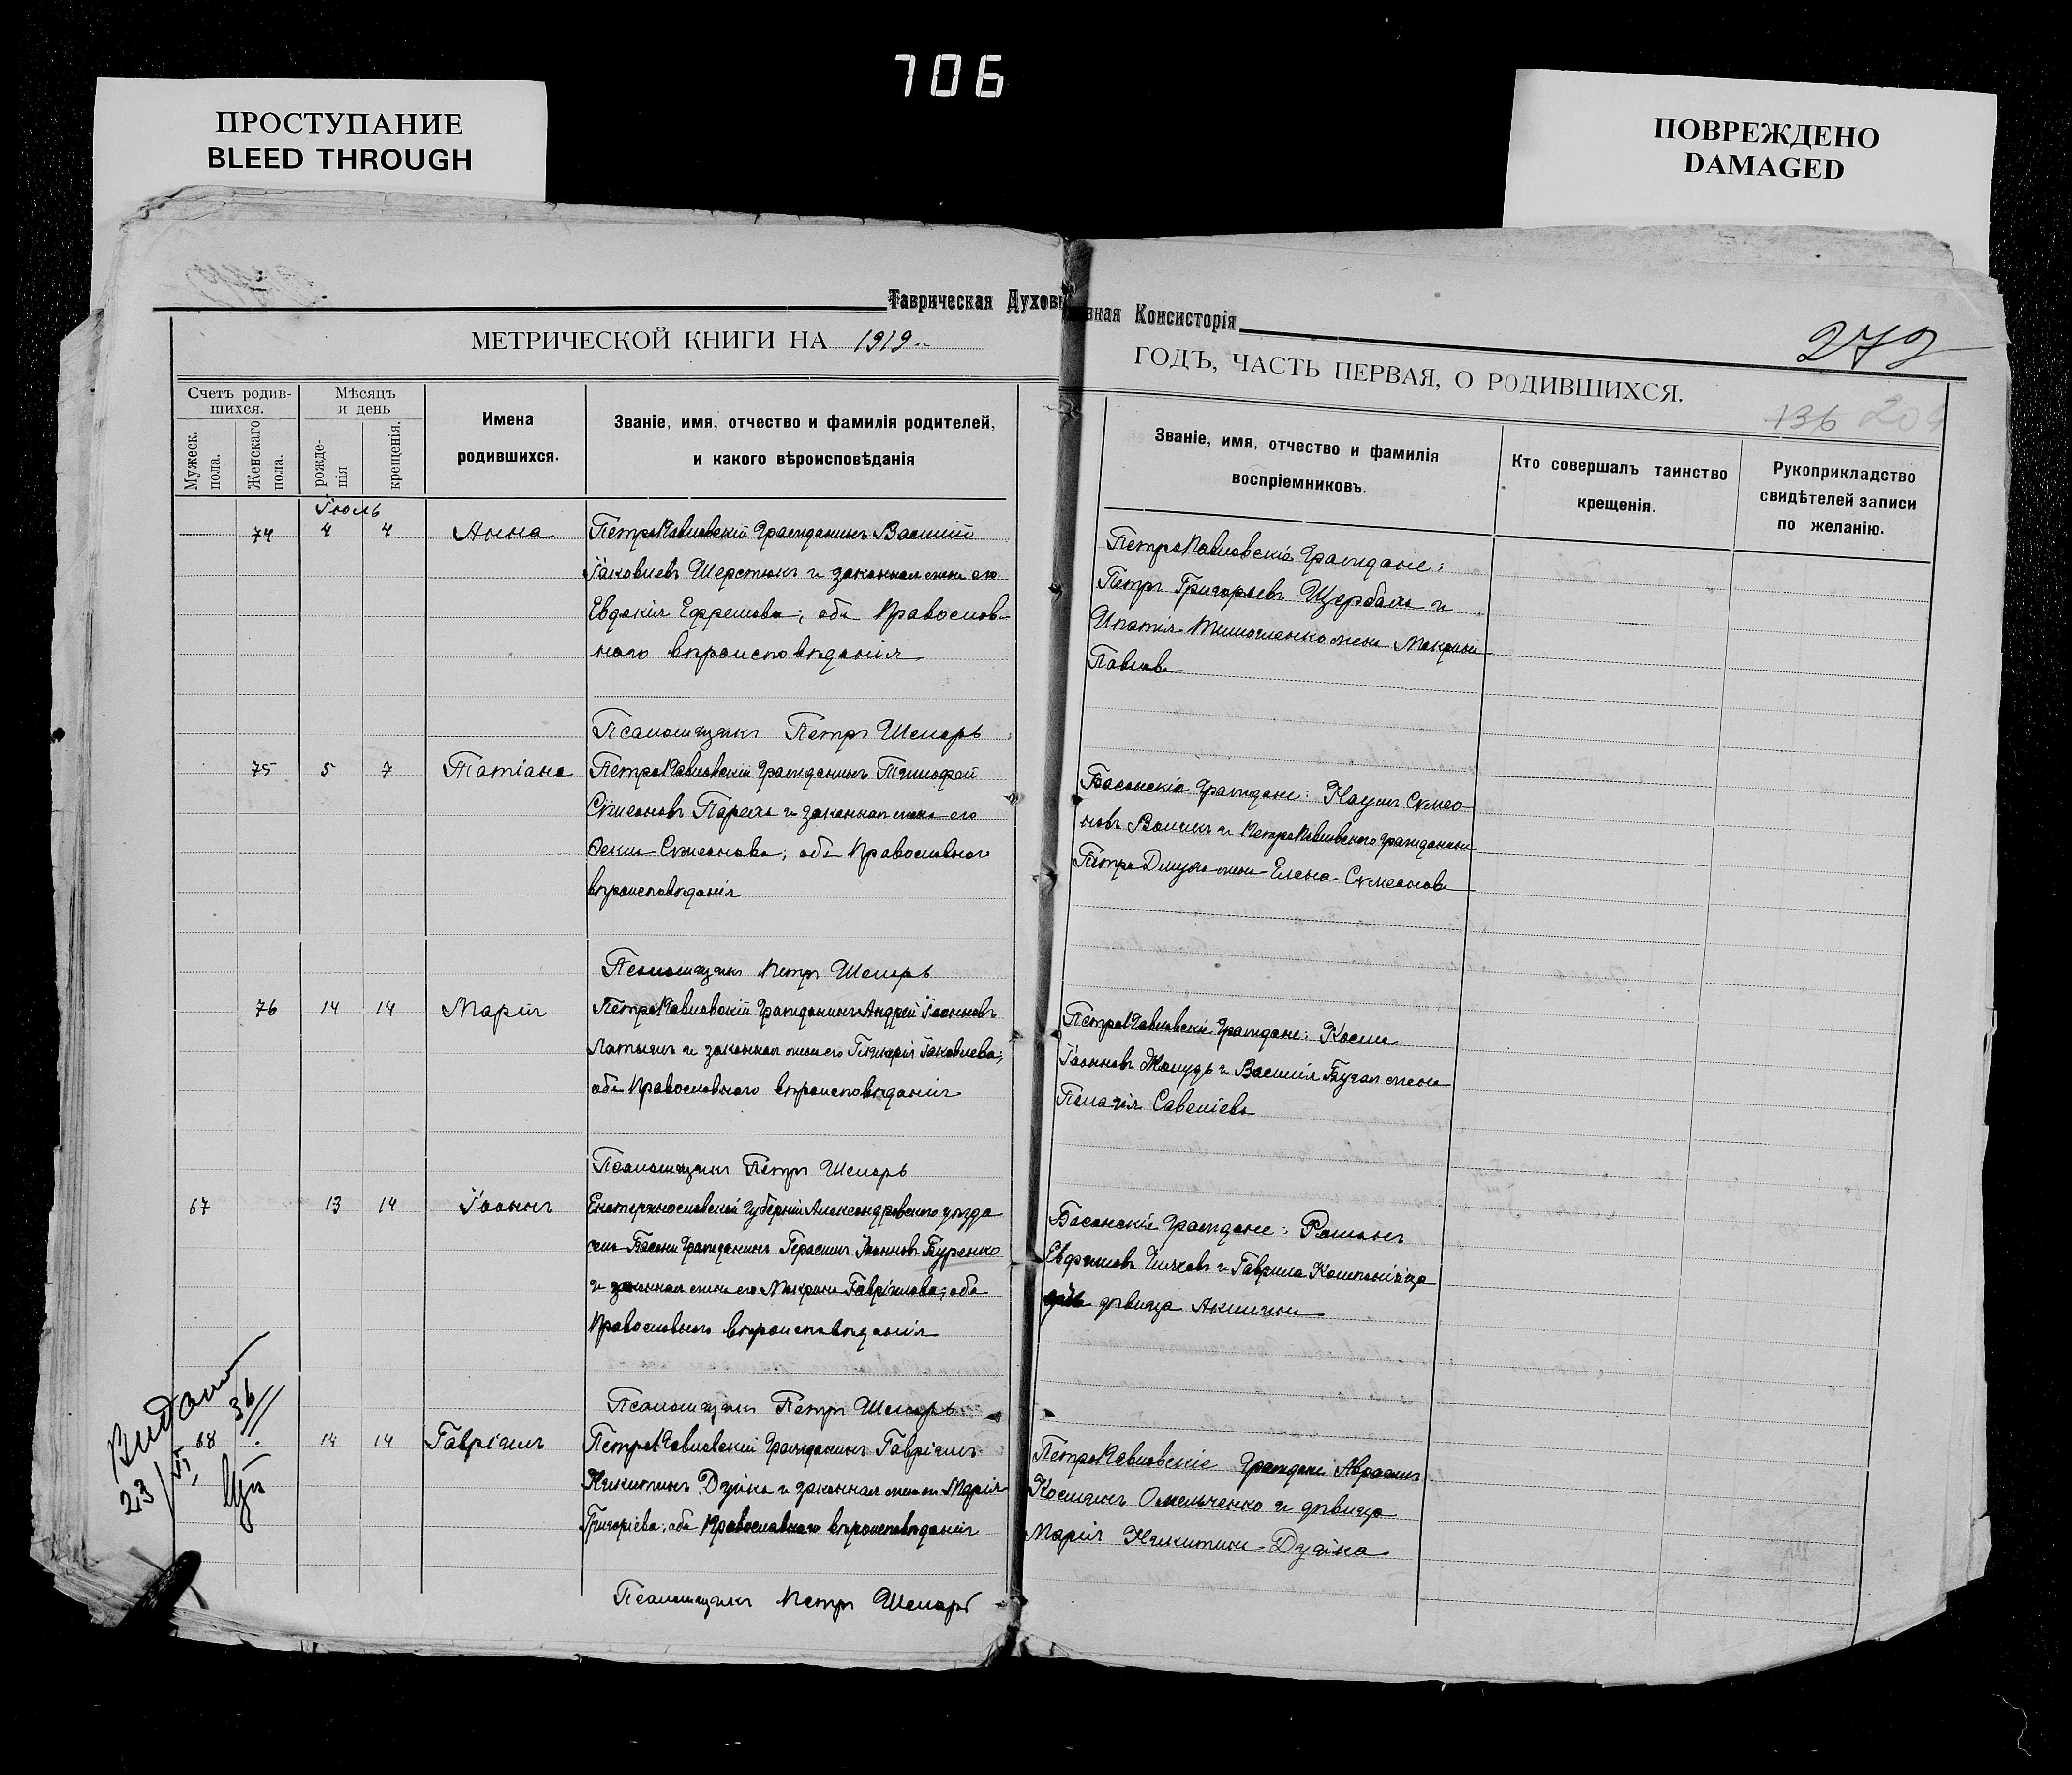 706
ПРОСТУПАНИЕ
BLEED THROUGH
ПОВРЕЖДЕНО
DAMAGED
Таврическая Духовная Консисторія
272
МЕТРИЧЕСКОЙ КНИГИ НА 1919
ГОДЪ, ЧАСТЬ ПЕРВАЯ, О РОДИВШИХСЯ.
136 209
Счетъ родив-
шихся.
Мужеск.
пола.
Женскаго
пола.
Мѣсяцъ
и день
рожде-
нія
крещенія.
Имена
родившихся.
Званіе, имя, отчество и фамилія родителей,
и какого вѣроисповѣданія
Званіе, имя, отчество и фамилія
воспріемниковъ.
Кто совершалъ таинство
крещенія.
Рукоприкладство
свидѣтелей записи
по желанію.
Іюль
74 4 4 Анна Петропавловскій Гражданинъ Василій
Іаковлевъ Шерстюкъ и законная жена его
Евдокія Ефремова; оба Православ-
наго вѣроисповѣданія
Петропавловскіе Граждане:
Петръ Григорьевъ Щербак и
Ипатія жена Макрина
Павлова
Псаломщикъ Петръ Шепарь
75 5 7 Татіана Петропавловскій Гражданинъ Тимофей
Сѵмеоновъ и законная жена его
Фекла Сѵмеонова; оба Православнаго
вѣроисповѣданія
Басанскіе Граждане: Наумъ Сѵмео-
новъ Волчекъ и Петропавловского Гражданина
Петра жена Елена Сѵмеонова
Псаломщикъ Петръ Шепарь
76 14 14 Марія Петропавловскій Гражданинъ Андрей Іоанновъ
Латышъ и законная жена его Гликерія Іаковлева;
оба Православного вѣроисповѣданія
Петропавловскіе Граждане: Косма
Іоанновъ и Василія Бугая жена
Пелагія Савеліева
Псаломщикъ Петръ Шепарь
67 13 14 Іоаннъ Екатеринославской Губерніи Александровского уѣзда
села Басани Гражданинъ Герасимъ Іоанновъ Буренко
и законная жена его Макрина Гавріилова; оба
Православного вѣроисповѣданія
Басанскіе Граждане: Романъ
Евфимовъ и Гаврила Компанійца
дѣвица Акилина
Псаломщикъ Петръ Шепарь
68 14 14 Гавріилъ Петропавловскій Гражданинъ Гавріилъ
Никитинъ Дудка и законная жена его Марія
Григоріева; оба Православного вѣроисповѣданія
Петропавловскіе Граждане Авраамъ
Косминъ Омельченко и дѣвица
Марія Никитина Дудка
Псаломщикъ Петръ Шепарь
23/VI 36